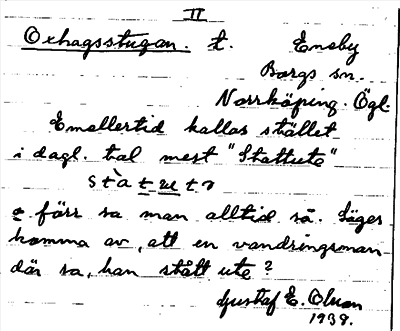 II
Oxhagsstugan. t. Eneby
Borgs sn.
Norrköping. Ögl.
Emellertid kallas stället
i dagl. tal mest "Stattute"
stàtutə
o. förr sa man alltid så. Säges
komma av, att en vandringsman
där sa, han stått ute?
Gustaf E. Olson
1939.